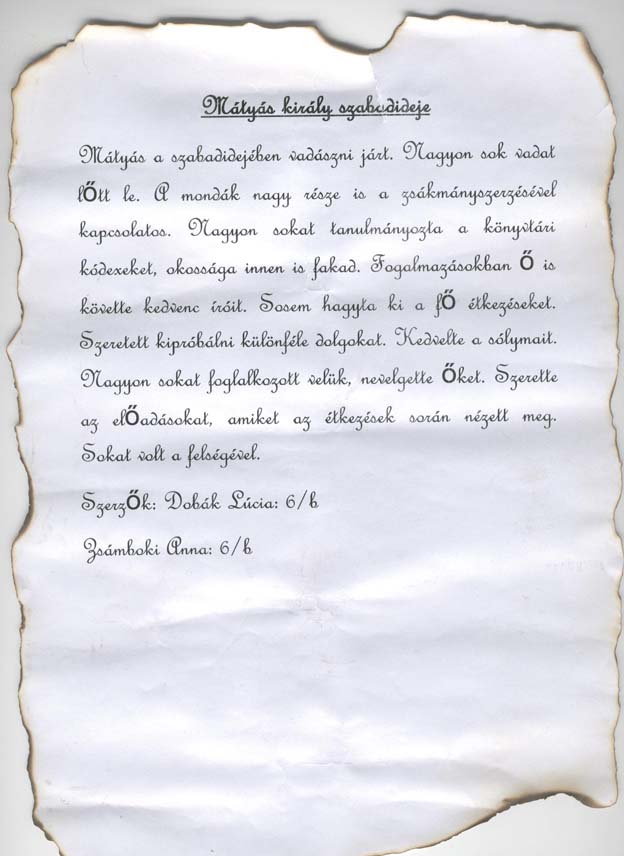 Mátyás király szabadideje
Mátyás a szabadidejében vadászni járt. Nagyon sok vadat
lŐtt le. A mondák nagy része is a zsákmányszerzésével
kapcsolatos. Nagyon sokat tanulmányozta a könyvtári
kódexeket, okossága innen is fakad. Fogalmazásokban Ő is
követte kedvenc íróit. Sosem hagyta ki a fŐ étkezéseket.
Szeretett kipróbálni különféle dolgokat. Kedvelte a sólymait.
Nagyon sokat foglalkozott velük, nevelgette Őket. Szerette
az elŐadásokat, amiket az étkezések során nézett meg.
Sokat volt a felségével.
SzerzŐk: Dobák Lúcia: 6/b
Zsámboki Anna: 6/b